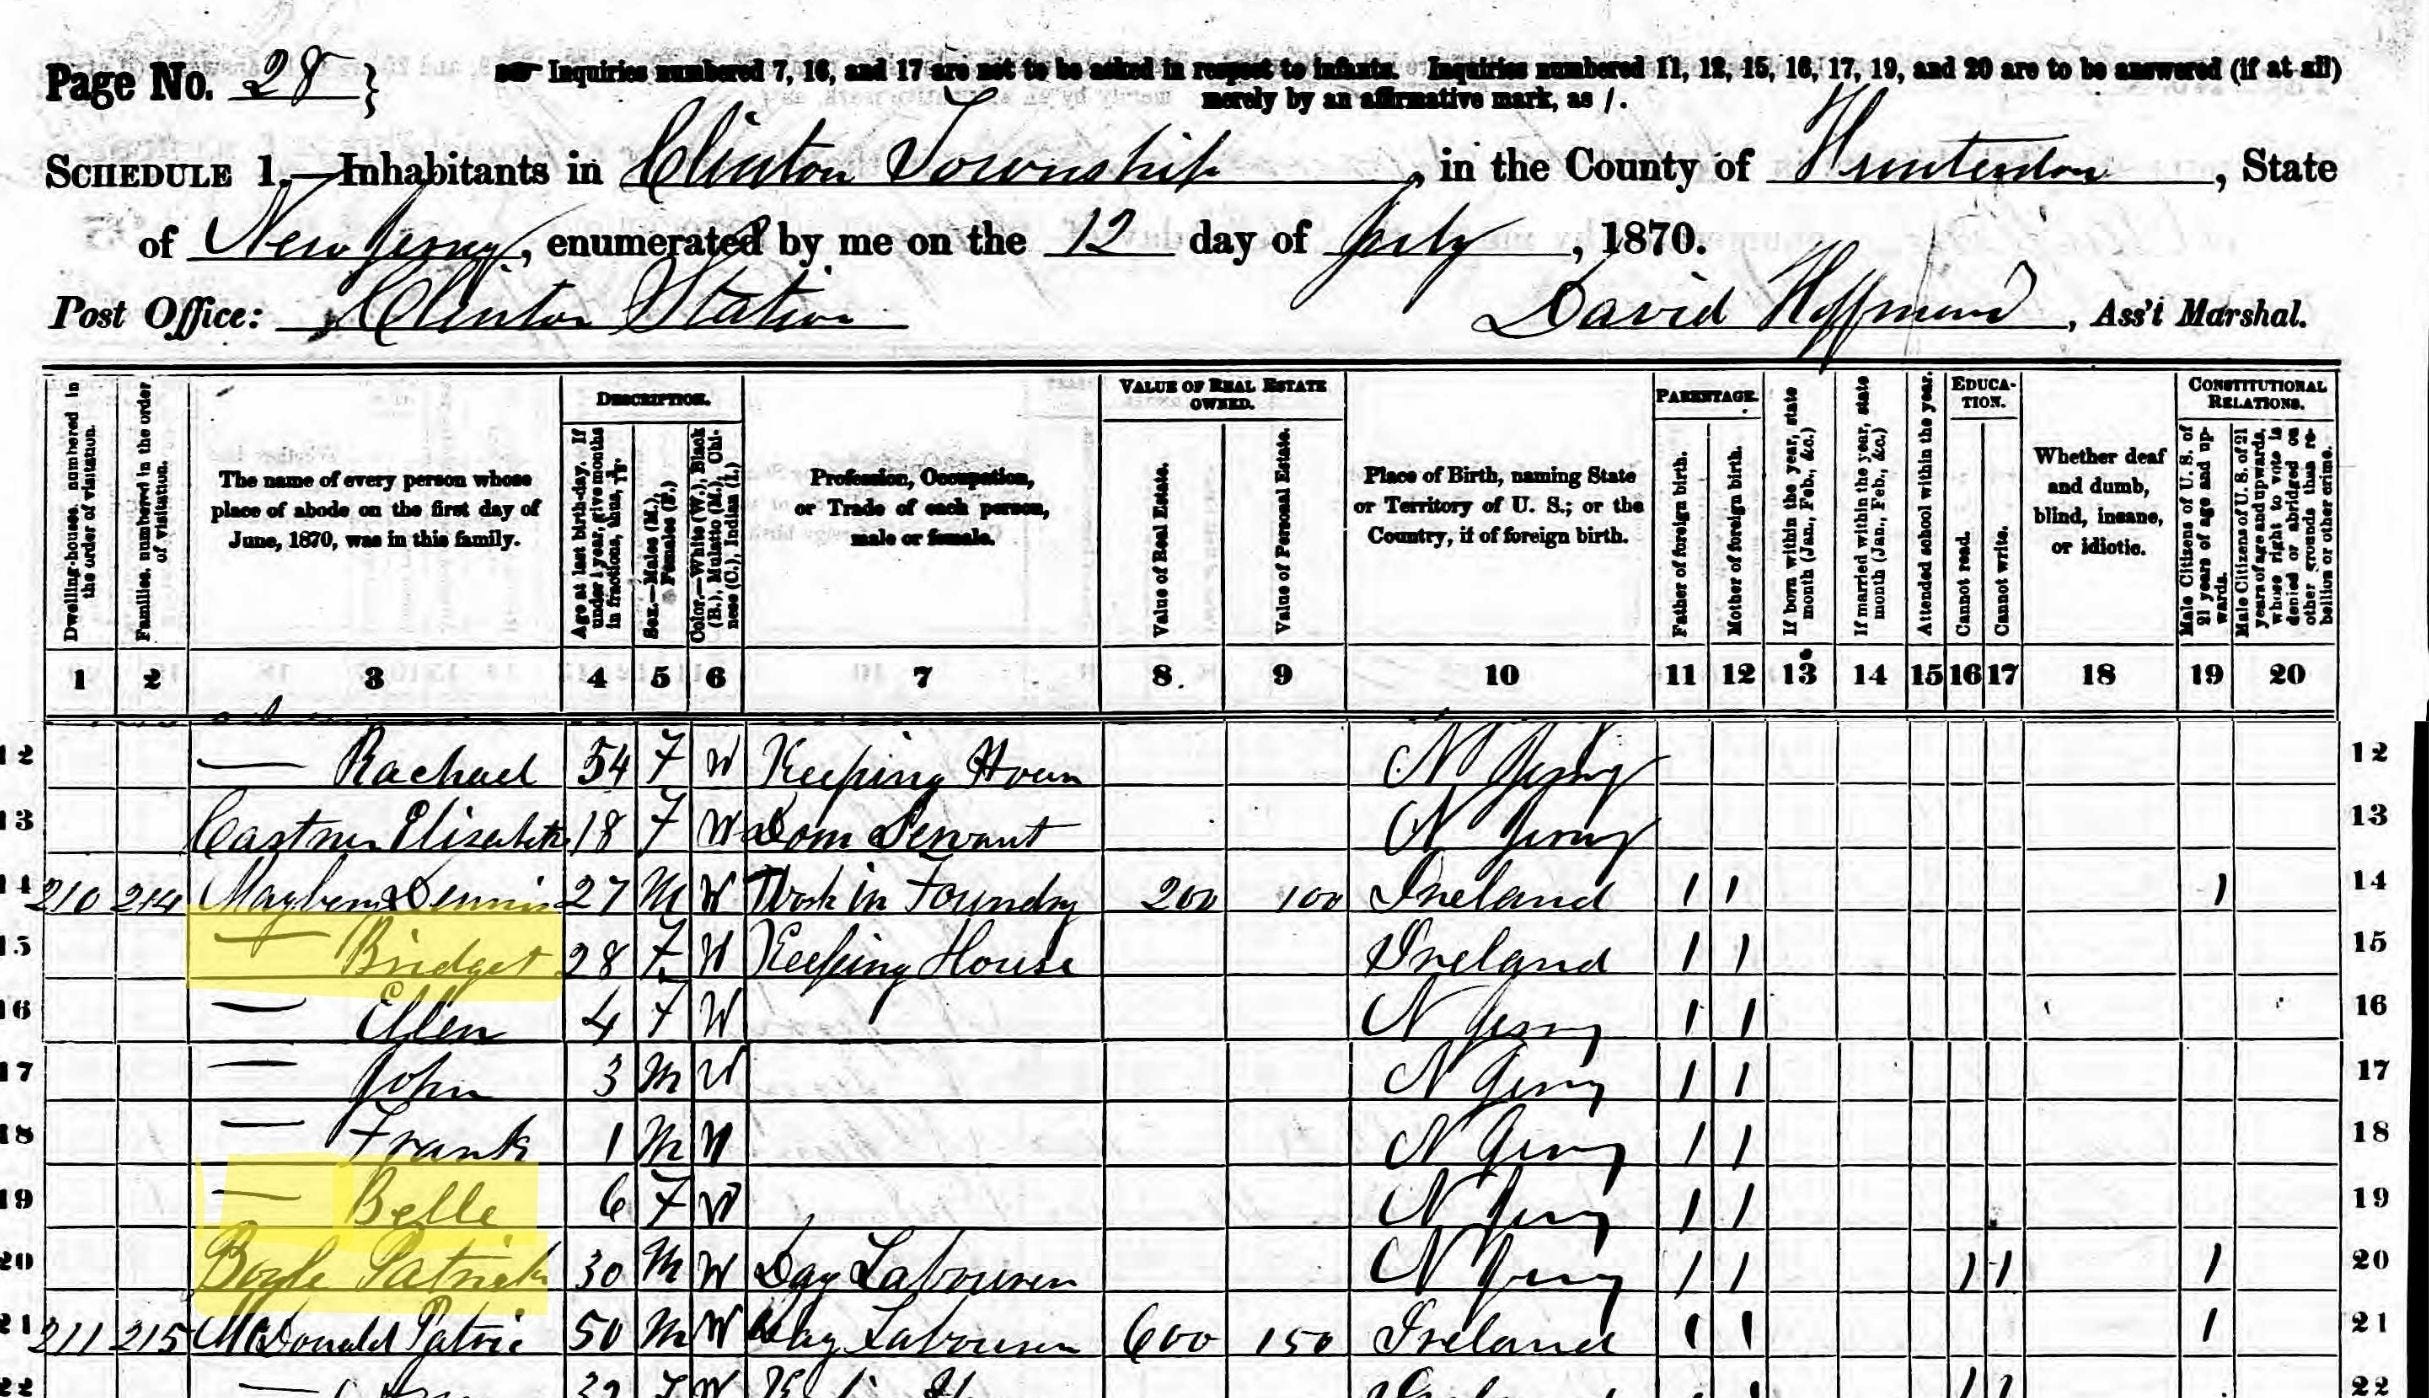 Page No. 28 }
Inquiries numbered 7, 16, and 17 are not to be asked in respect to infants. Inquiries numbered 11, 12, 15, 16, 17, 19, and 20 are to be answered (if at all)
merely by an affirmative mark, as /.
SCHEDULE 1.—Inhabitants in Clinton Township, in the County of Hunterdon, State
of New Jersey, enumerated by me on the 12 day of July, 1870.
Post Office: Clinton Station David Hoffman, Ass't Marshal.
Dwelling-houses, numbered in the order of visitation.
Families, numbered in the order of visitation.
The name of every person whose place of abode on the first day of June, 1870, was in this family.
DESCRIPTION.
Age at last birth-day. If under 1 year, give months in fractions, thus,
Sex.—Males (M.), Females (F.)
Color.—White (W.), Black (B.), Mulatto (M.), Chinese (C.), Indian (I.)
Profession, Occupation, or Trade of each person, male or female.
VALUE OF REAL ESTATE OWNED.
Value of Real Estate.
Value of Personal Estate.
Place of Birth, naming State or Territory of U. S.; or the Country, if of foreign birth.
PARENTAGE.
Father of foreign birth.
Mother of foreign birth.
If born within the year, state month (Jan., Feb., &c.)
If married within the year, state month (Jan., Feb., &c.)
Attended school within the year.
EDUCATION.
Cannot read.
Cannot write.
Whether deaf and dumb, blind, insane, or idiotic.
CONSTITUTIONAL RELATIONS.
Male Citizens of U. S. of 21 years of age and upwards.
Male Citizens of U. S. of 21 years of age and upwards, whose right to vote is denied or abridged on other grounds than rebellion or other crime.
1 2 3 4 5 6 7 8 9 10 11 12 13 14 15 16 17 18 19 20
12 — Rachael 54 F W Keeping N Jersey 12
13 Castner Elizabeth 18 F W Dom Servant N Jersey 13
14 210 214 Dennis 27 M W Work in Foundry 200 100 Ireland 1 1 1 14
15 — Bridget 28 F W Keeping House Ireland 1 1 15
16 — Ellen 4 F W N Jersey 1 1 16
17 — John 3 M W N Jersey 1 1 17
18 — Frank 1 M W N Jersey 1 1 18
19 — Belle 6 F W N Jersey 1 1 19
20 Boyle Patrick 30 M W Day Labourer N Jersey 1 1 1 1 1 20
21 211 215 McDonald Patric 50 M W Day Labourer 600 150 Ireland 1 1 1 21
22 — F W 1 1 22